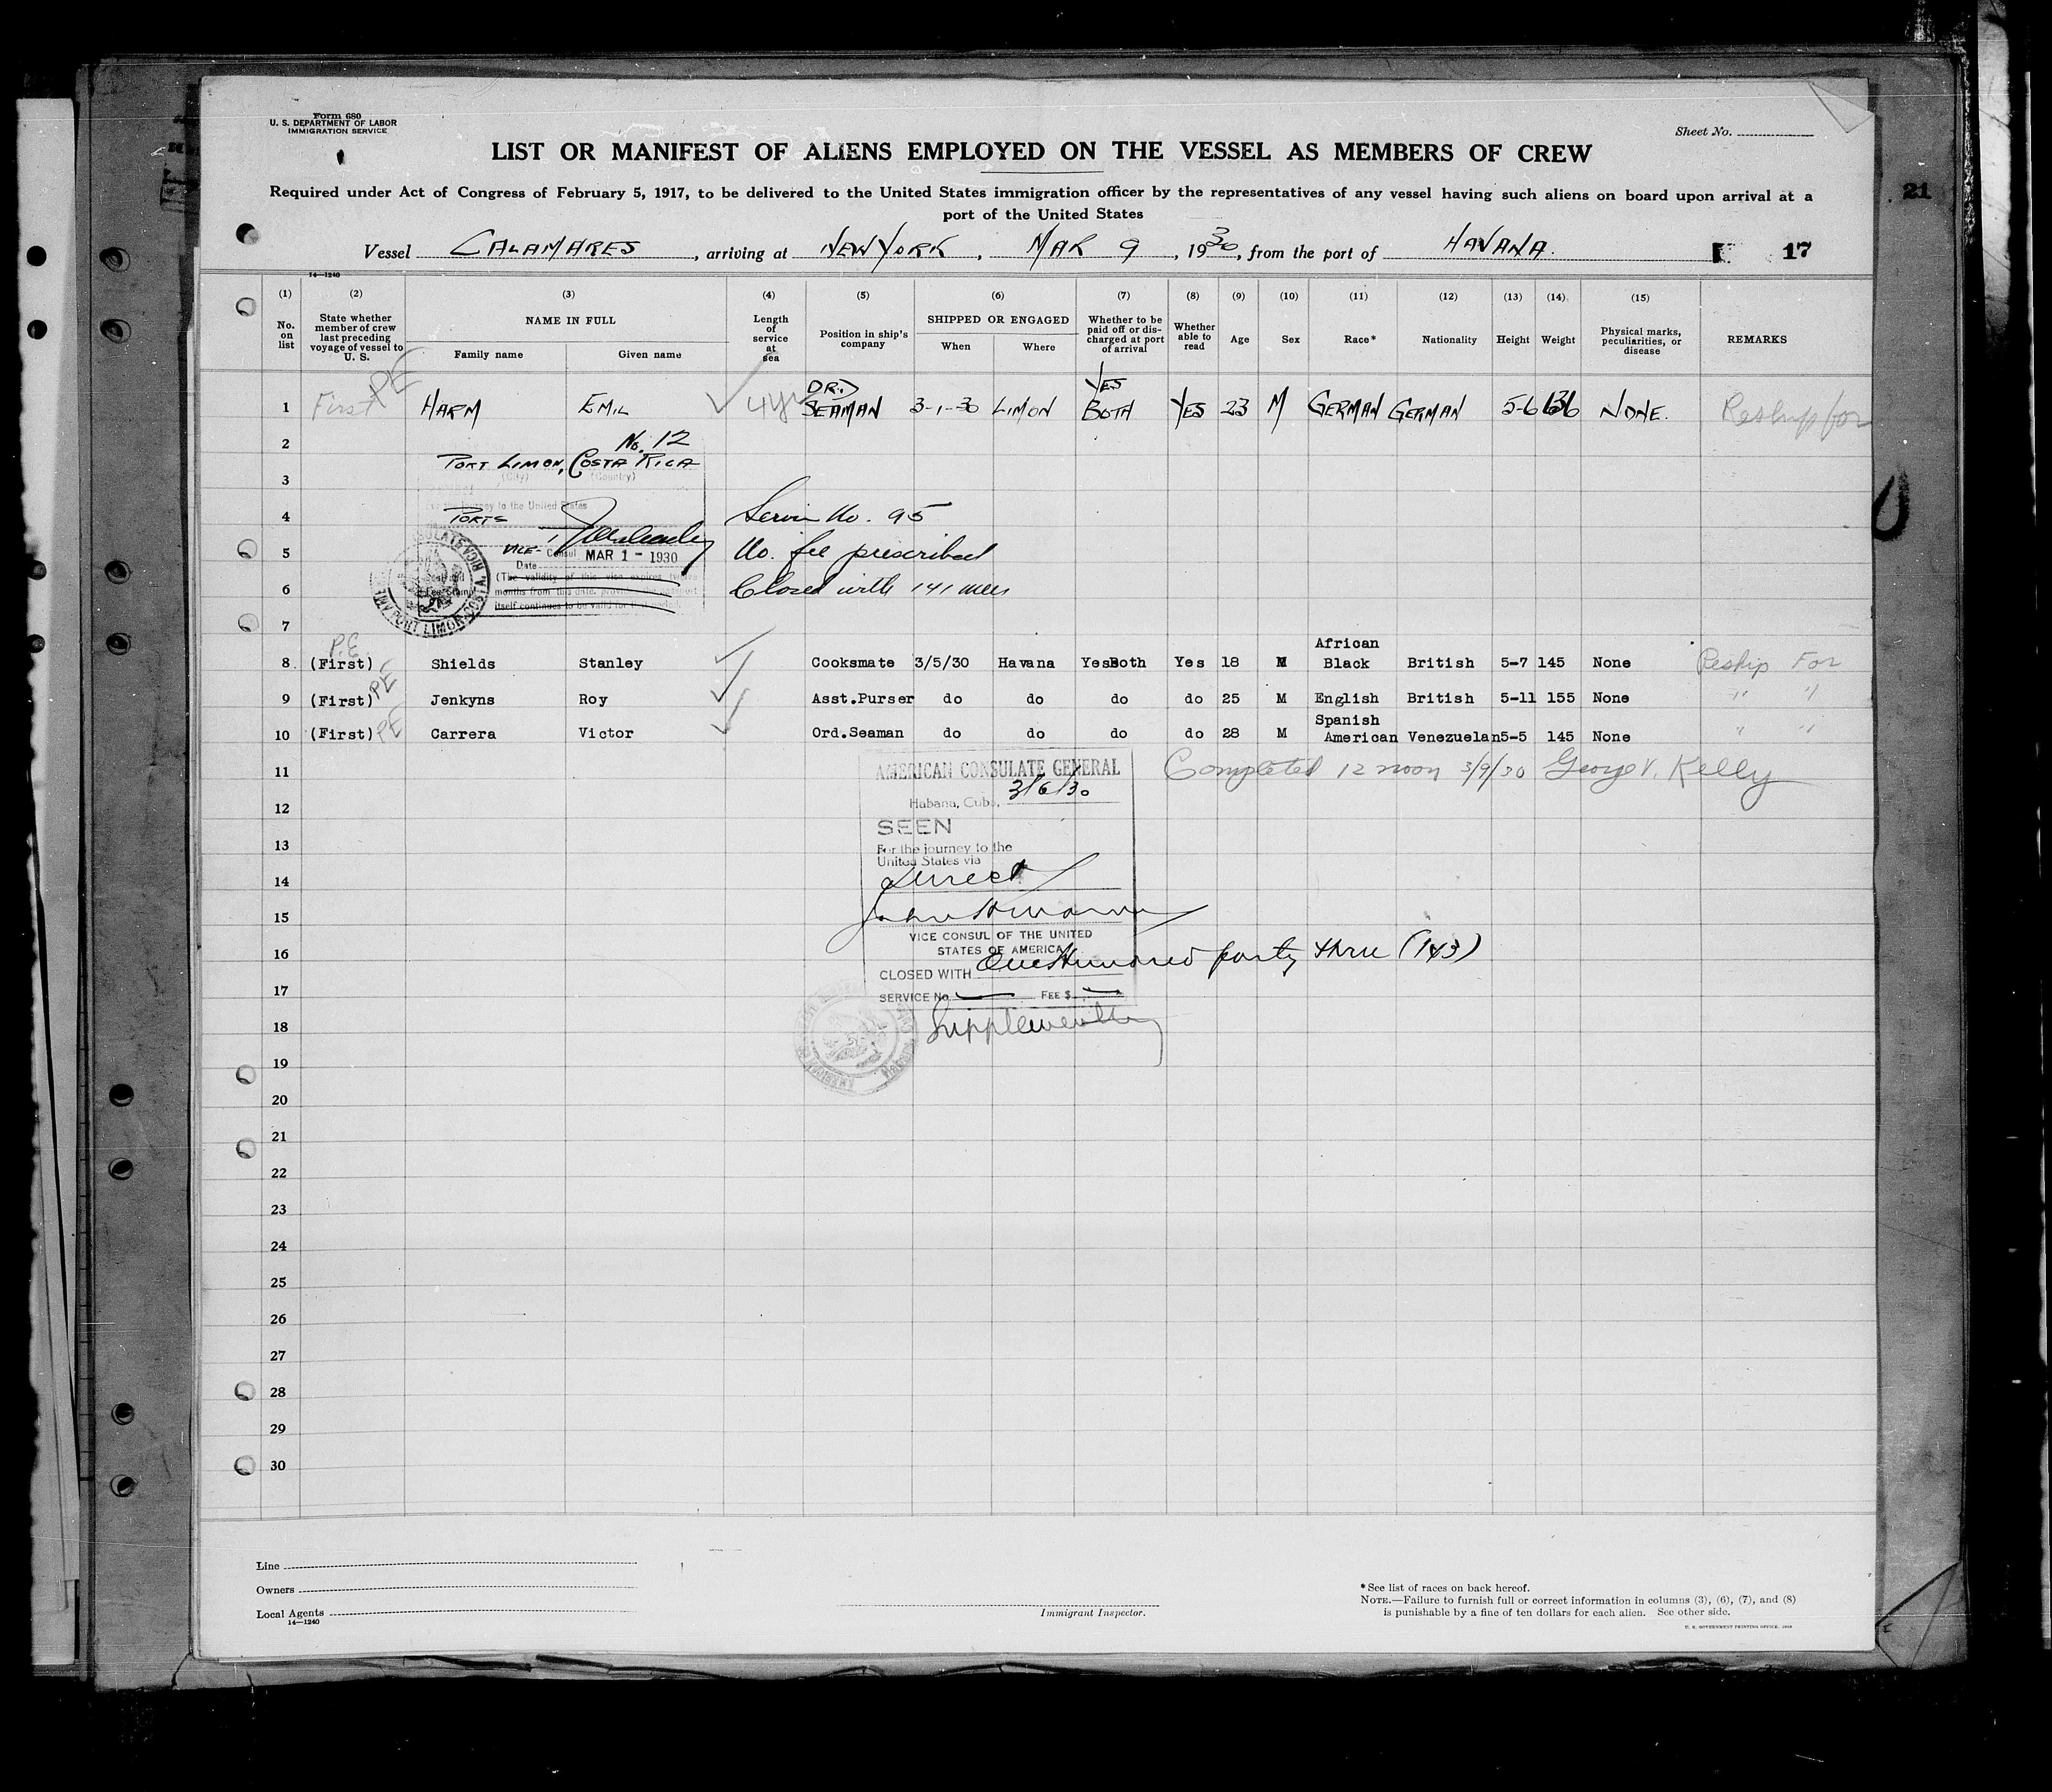 Form 680
U. S. DEPARTMENT OF LABOR
IMMIGRATION SERVICE
Sheet No.
LIST OR MANIFEST OF ALIENS EMPLOYED ON THE VESSEL AS MEMBERS OF CREW
Required under Act of Congress of February 5, 1917, to be delivered to the United States immigration officer by the representatives of any vessel having such aliens on board upon arrival at a
port of the United States
21
Vessel CALAMARES, arriving at NEW YORK, MAR 9, 1930, from the port of HAVANA.
17
14—1240
(1) (2) (3) (4) (5) (6) (7) (8) (9) (10) (11) (12) (13) (14) (15)
No. on list
State whether member of crew last preceding voyage of vessel to U. S.
NAME IN FULL
Family name Given name
Length of service at sea
Position in ship's company
SHIPPED OR ENGAGED
When Where
Whether to be paid off or discharged at port of arrival
Whether able to read
Age
Sex
Race*
Nationality
Height
Weight
Physical marks, peculiarities, or disease
REMARKS
PE
1 First HARM EMIL 4 yrs SEAMAN 3-1-30 LIMON YES BOTH YES 23 M GERMAN GERMAN 5-6 136 NONE. Reship for
2 No. 12
PORT LIMON, COSTA RICA
(City) (Country)
3
journey to the United States
4 PORTS Servic No. 95
5 VICE- Consul MAR 1 - 1930 No. fee prescribed
Date
(The validity of this visa expires twelve
6 months from this date, provided the passport Closed with 141 men
itself continues to be valid for that period.
PORT LIMON
7
P.E. African
8 (First) Shields Stanley Cooksmate 3/5/30 Havana Yes Both Yes 18 M Black British 5-7 145 None Reship For
9 (First) PE Jenkyns Roy Asst.Purser do do do do 25 M English British 5-11 155 None " "
Spanish
10 (First) PE Carrera Victor Ord.Seaman do do do do 28 M American Venezuelan 5-5 145 None " "
11 AMERICAN CONSULATE GENERAL Completed 12 noon 3/9/30 George V. Kelly
12 Habana, Cuba, 3/6/30
SEEN
13 For the journey to the
United States via
14 direct
15
VICE CONSUL OF THE UNITED
STATES OF AMERICA
16 CLOSED WITH One Hundred forty three (143)
17 SERVICE No. FEE $
18 Supplementary
19
20
21
22
23
24
25
26
27
28
29
30
Line
Owners
Local Agents
14—1240
Immigrant Inspector.
*See list of races on back hereof.
NOTE.—Failure to furnish full or correct information in columns (3), (6), (7), and (8)
is punishable by a fine of ten dollars for each alien. See other side.
U. S. GOVERNMENT PRINTING OFFICE